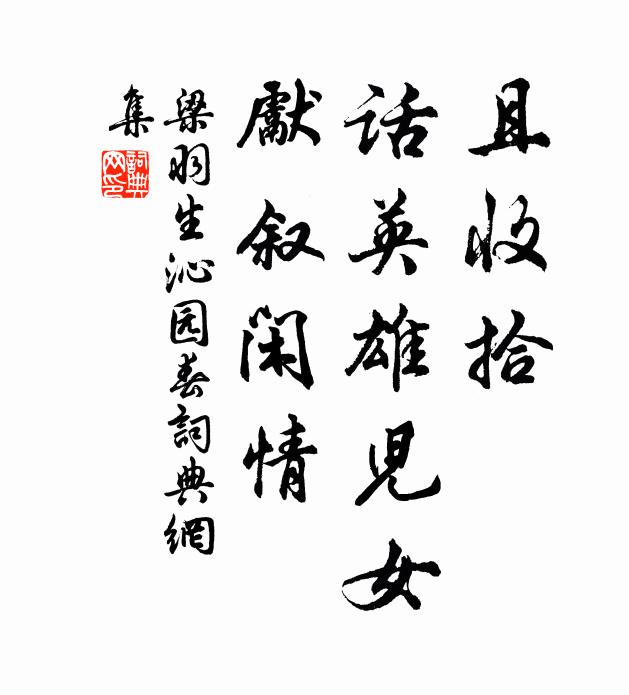 且收拾
话英雄児女
獻叙闲情
梁羽生沁园春詞典網
集
詞典
网印